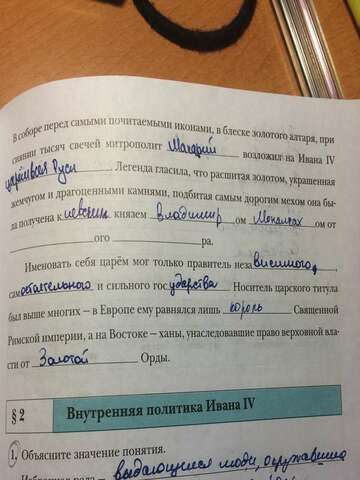 В соборе перед самыми почитаемыми иконами, в блеске золотого алтаря, при
сиянии тысяч свечей митрополит Макарий возложил на Ивана IV
царя всея Руси. Легенда гласила, что расшитая золотом, украшенная
жемчугом и драгоценными камнями, подбитая самым дорогим мехом она бы-
ла получена киевским князем Владимиром Мономахом от
ого ра.
Именовать себя царём мог только правитель независимого,
самостоятельного и сильного государства. Носитель царского титула
был выше многих – в Европе ему равнялся лишь король Священной
Римской империи, а на Востоке – ханы, унаследовавшие право верховной вла-
сти от Золотой Орды.
§ 2 Внутренняя политика Ивана IV
1. Объясните значение понятия.
Избранная рада – выдающиеся люди, окружавшие